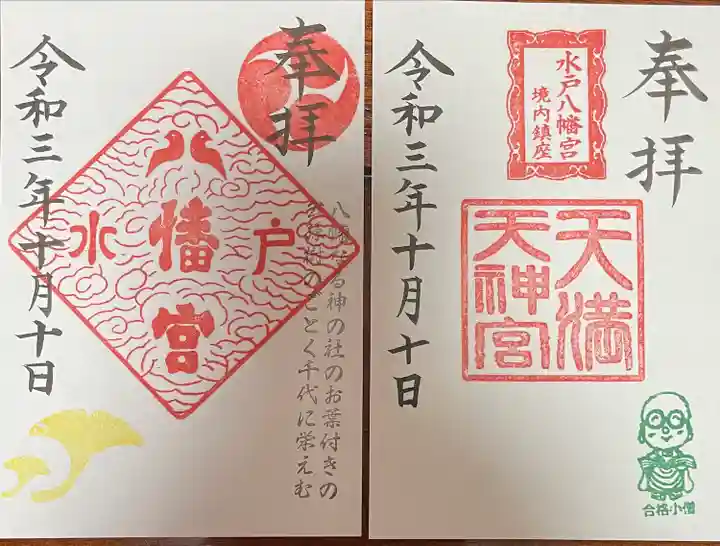 奉拝
八幡宮
水戸
八幡なる神の社のお葉付きの
のごとく千代に栄えむ
令和三年十月十日
奉拝
水戸八幡宮
境内鎮座
天満
天神宮
令和三年十月十日
合格小僧